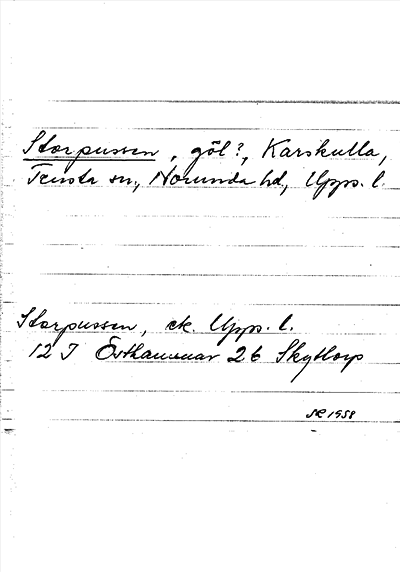 Storpussen, göl?, Karskulla,
Tensta sn, Norunda hd, Upps. l.
Storpussen, ek. Upps. l.
12 I Östhammar 2 b Skyttorp
1958